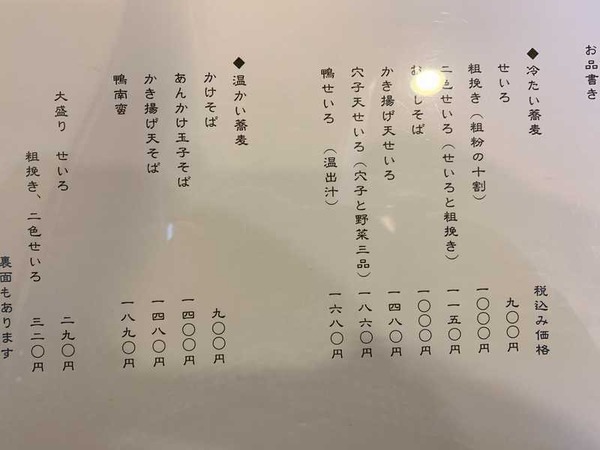 お品書き
税込み価格
◆冷たい蕎麦
せいろ 九〇〇円
粗挽き(粗粉の十割) 一〇〇〇円
二色せいろ(せいろと粗挽き) 一一五〇円
お しそば 一〇〇〇円
かき揚げ天せいろ 一四八〇円
穴子天せいろ(穴子と野菜三品) 一八六〇円
鴨せいろ (温出汁) 一六八〇円
◆温かい蕎麦
かけそば 九〇〇円
あんかけ玉子そば 一四〇〇円
かき揚げ天そば 一四八〇円
鴨南蛮 一八九〇円
大盛り せいろ 二九〇円
粗挽き、二色せいろ 三二〇円
裏面もあります